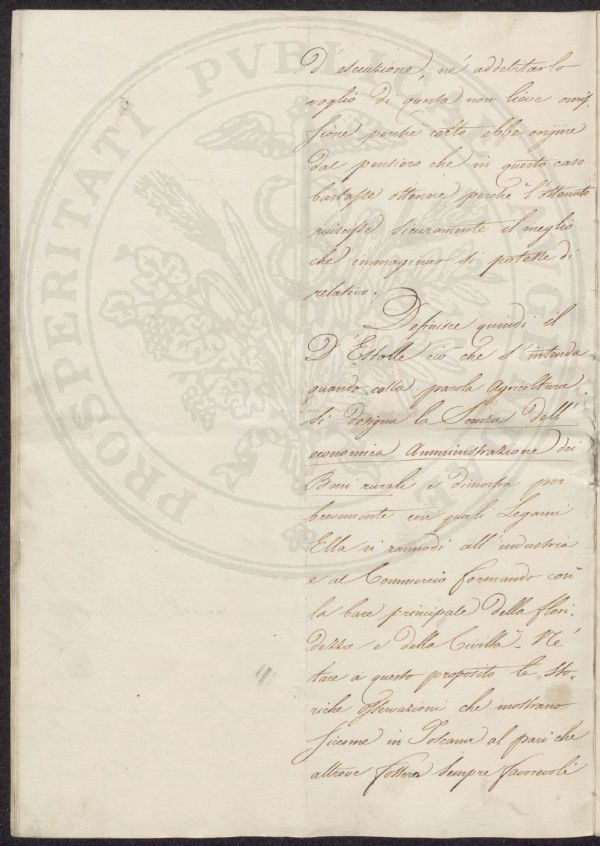 D'esecuzione, né addebitarlo
voglio di questa non lieve omis-
sione perchè certo ebbe origine
dal pensiero che in questo caso
bastasse ottenere perchè l'ottenuto
riuscisse sicuramente il meglio
che immaginar si potesse di
relativo.
Definisce quindi il
D' Estolle ciò che s'intenda
quando colla parola Agricoltura
si designa la Scenza dell'
economica Amministrazione dei
Beni rurale e dimostra poi
brevemente con quali Legami
Ella si rannodi all'industria
e al Commercio formando così
la base principale della flori-
dezza e della Civiltà. Né
tace a questo proposito le sto-
riche osservazioni che mostrano
siccome in Toscana al pari che
altrove fossero sempre favorevoli
PROSPERITATI PVBLICAE